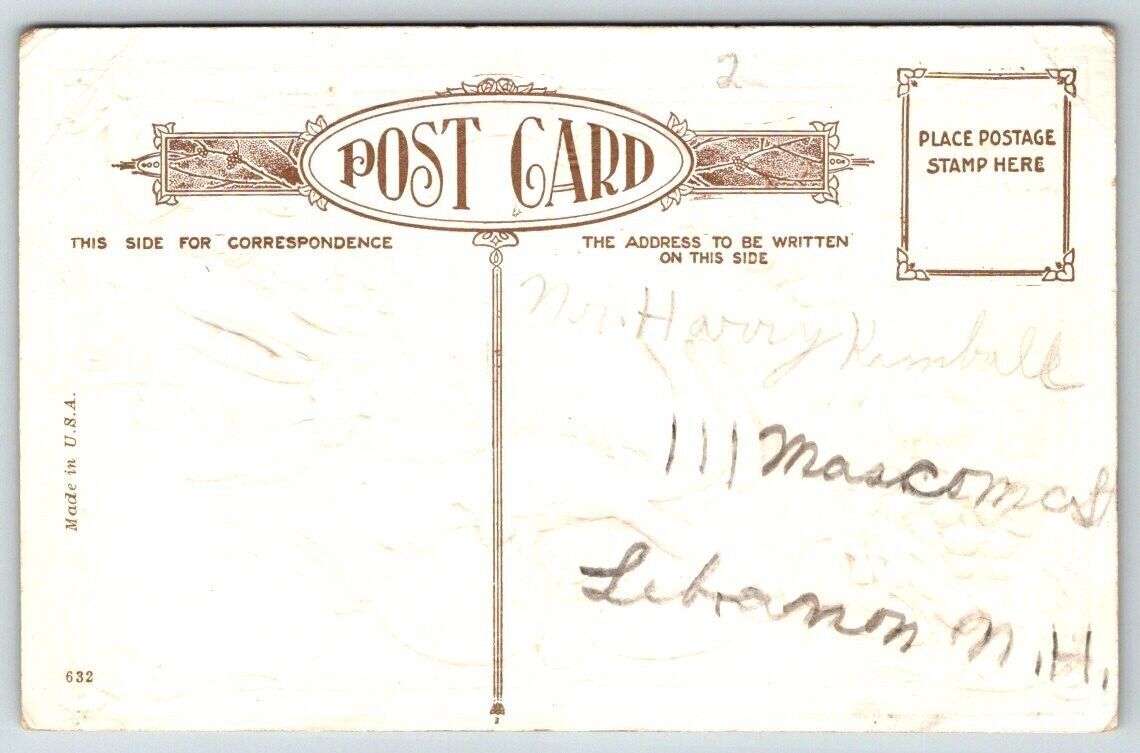 2
POST CARD
PLACE POSTAGE
STAMP HERE
THIS SIDE FOR CORRESPONDENCE
THE ADDRESS TO BE WRITTEN
ON THIS SIDE
Mr. Harry Kimball
111 Mascoma St
Lebanon N.H.
Made in U.S.A.
632